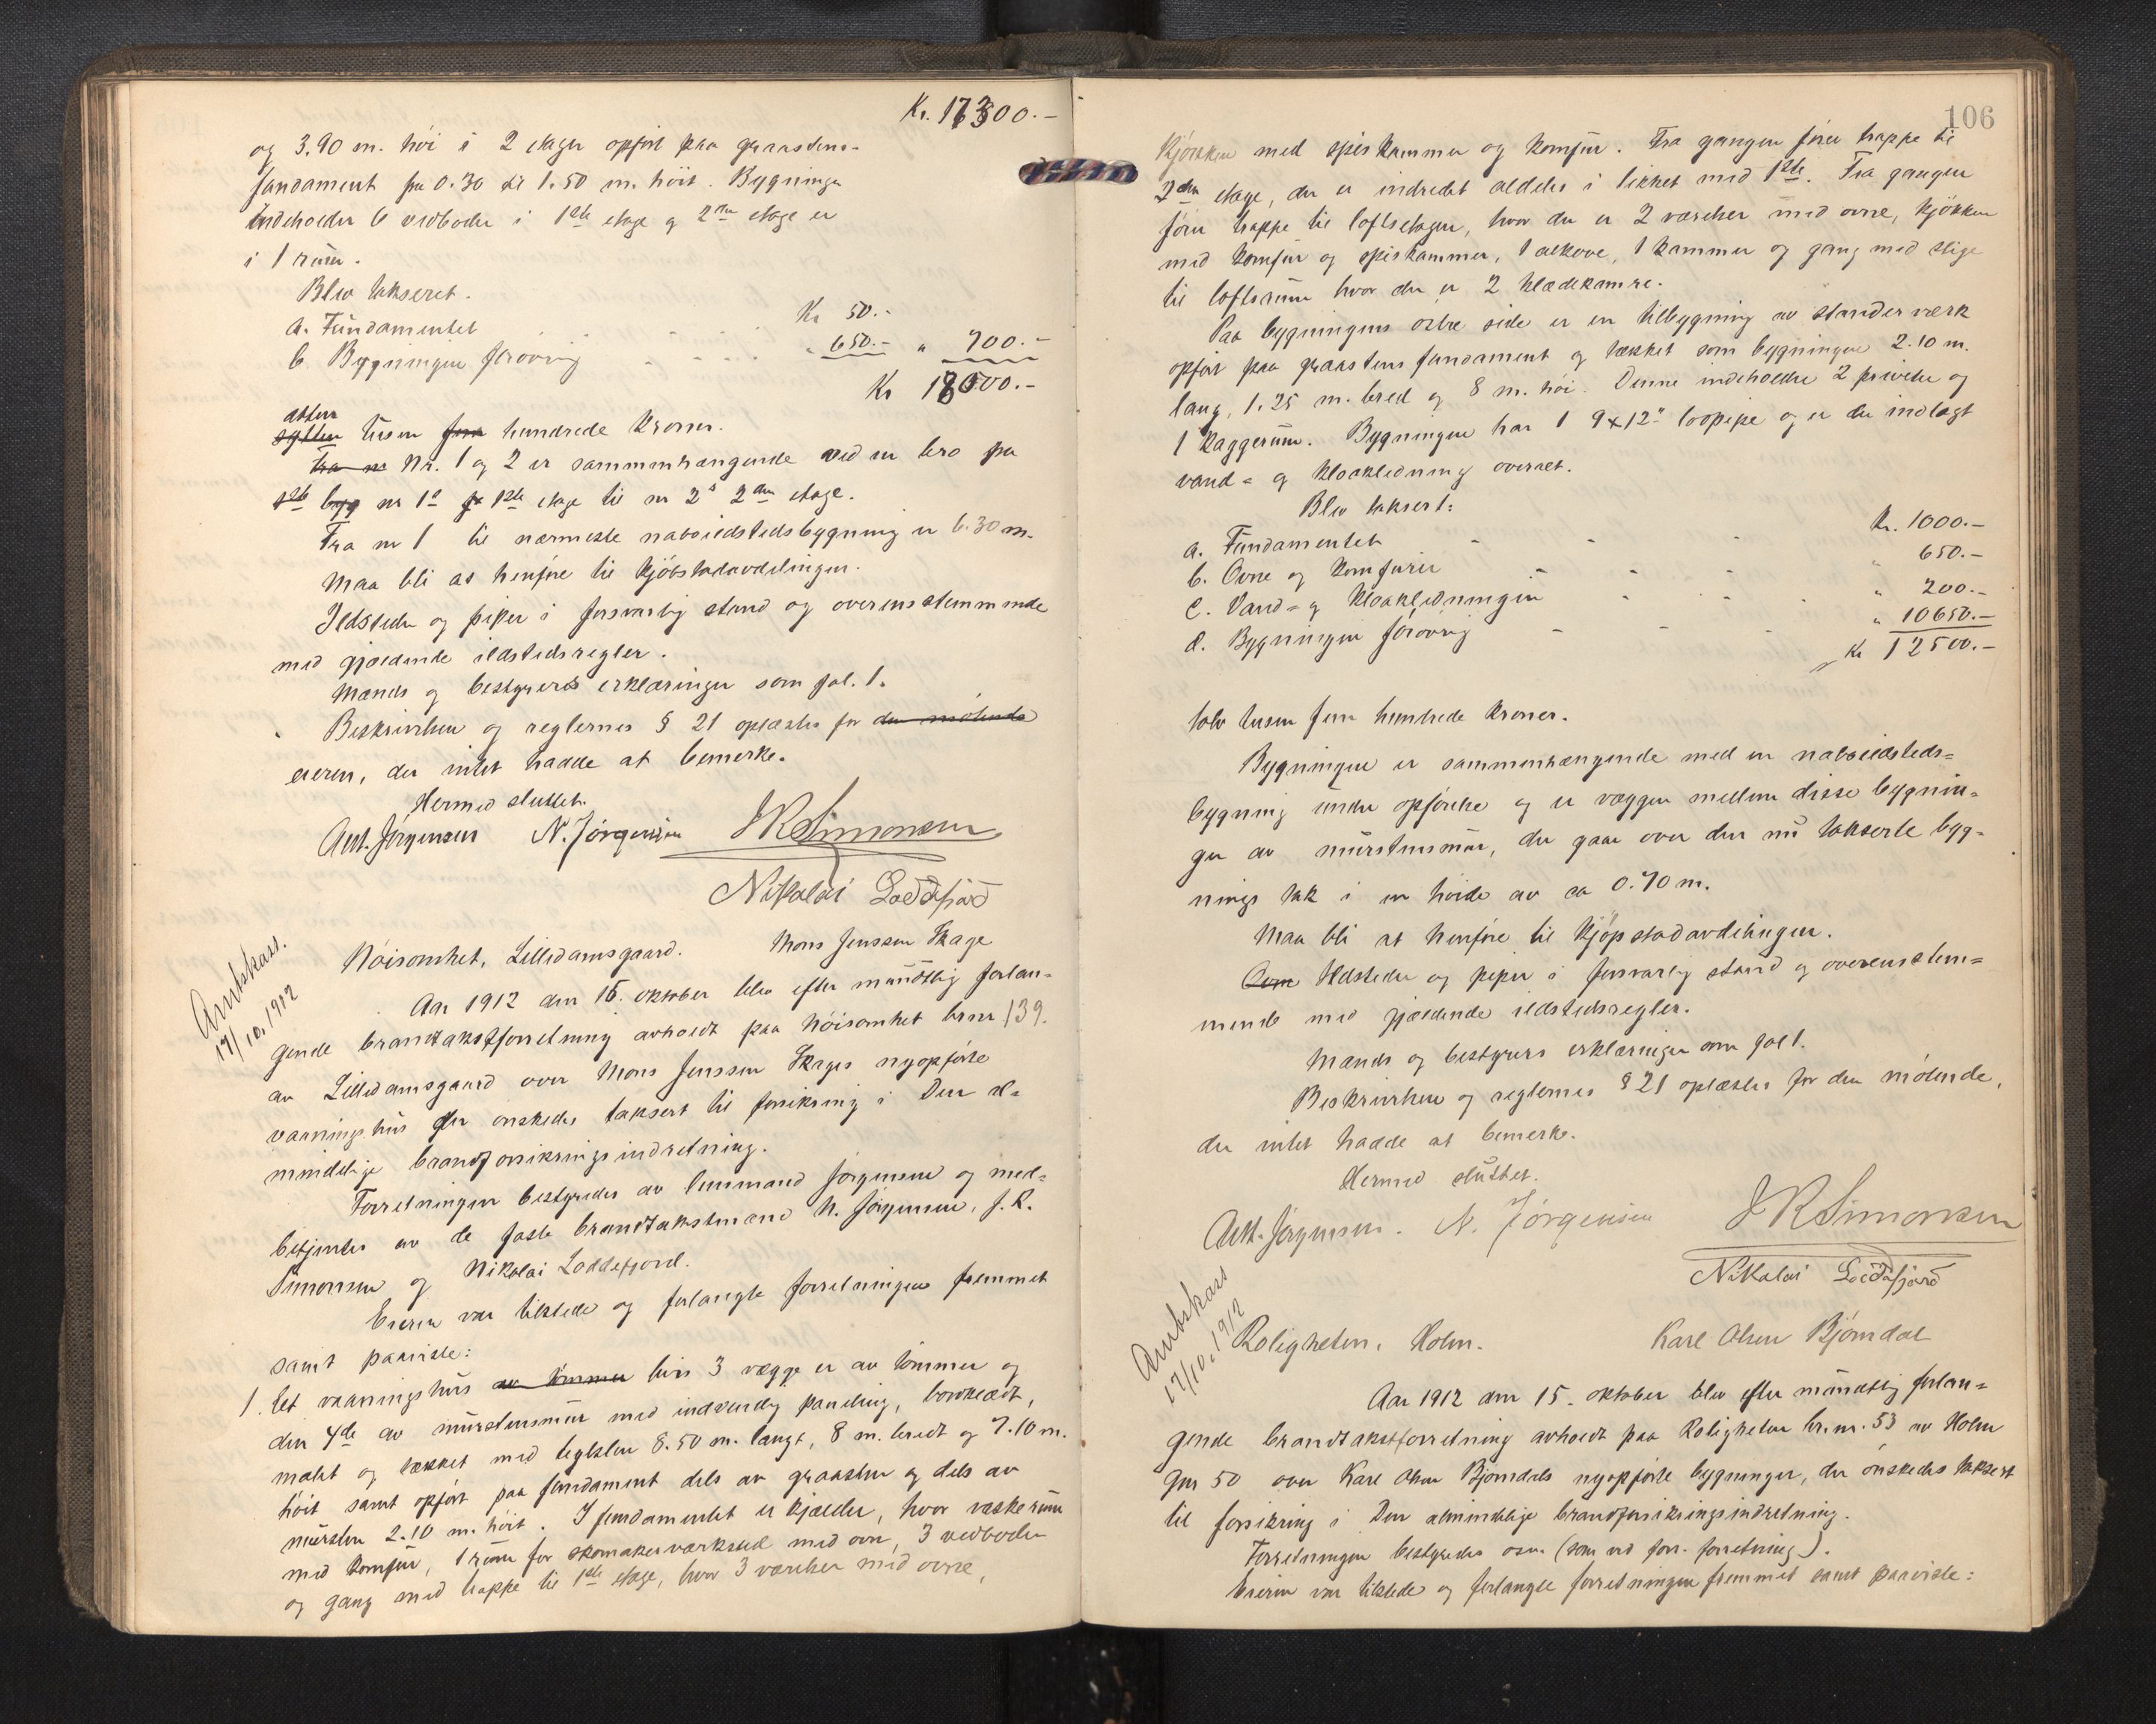 Kr. 17300.-
og 3.90 m. høi i 2 etager opført paa graastens-
fundament fra 0.30 til 1.50 m. høit. Bygningen
indeholder 6 vedboder i 1ste etage og 2den etage er
i 1 rum.
Blev takseret.
a. Fundamentet Kr 50.-
b. Bygningen forøvrig " 650.- " 700.-
Kr 18000.-
atten
sytten tusen fem hundrede kroner.
Fra nr Nr. 1 og 2 er sammenhængende ved en bro fra
1ste byg nr 1s fr 1ste etage til nr 2s 2den etage.
Fra nr 1 til nærmeste naboildstedsbygning er 6.30 m.
Maa bli at henføre til kjøbstadavdelingen.
Ildsteder og piper i forsvarlig stand og overensstemmende
med gjældende ildstedsregler.
Mænds og bestyrers erklæringer som fol. 1.
Beskrivelsen og reglernes § 21 oplæstes for den mötende
eieren, der intet hadde at bemerke.
Hermed sluttet.
Ant. Jørgensen N. Jørgensen J R Simonsen
Nikolai Loddefjord
Amtskass.
17/10.1912
Nöisomhet, Lilledamsgaard. Mons Jenssen Skage
Aar 1912 den 15. oktober blev efter mundtlig forlan-
gende brandtakstforretning avholdt paa Nöisomhet brnr 139.
av Lilledamsgaard over Mons Jenssen Skages nyopførte
vaaningshus der ønskedes taksert til forsikring i Den al-
mindelige brandforsikringsindretning.
Forretningen bestyredes av lensmand Jørgensen og med-
betjentes av de faste brandtakstmænd N. Jørgensen, J. R.
Simonsen og Nikolai Loddefjord.
Eieren var tilstede og forlangte forretningen fremmet
samt paaviste:
1. Et vaaningshus av tömmer hvis 3 vægge er av tömmer og
den 4de av murstensmur med indvendig paneling, bordklædt,
malet og tækket med teglsten 8.50 m. langt, 8 m. bredt og 7.10 m.
höit samt opført paa fundament dels av graasten og dels av
mursten 2.10 m. höit. I fundamentet er kjælder, hvor vaskerum
med komfur, 1 rum for skomakerværksted med ovn, 3 vedboder
og gang med trappe til 1ste etage, hvor 3 værelser med ovne,
106
Kjøkken med spiskammer og komfur. Fra gangen fører trappe til
2den etage, der er indredet aldeles i likhet med 1ste. Fra gangen
fører trappe til loftsetagen, hvor der er 2 værelser med ovne, kjökken
med komfur og spiskammer, 1 alkove, 1 kammer og gang med stige
til loftsrum hvor der er 2 klædekamre.
Paa bygningens östre side er en tilbygning av stenderværk
opfört paa graastens fundament og tækket som bygningen 2.10 m.
lang, 1.25 m. bred og 8 m. höi. Denne indeholder 2 priveter og
1 kaggerum. Bygningen har 1 9x12" lodpipe og er der indlagt
vand- og kloakledning overalt.
Blev taksert:
a. Fundamentet Kr. 1000.-
b. Ovne og komfurer " 650.-
c. Vand- og kloakledningen " 200.-
d. Bygningen forøvrig " 10650.-
Kr 12500.-
tolv tusen fem hundrede kroner.
Bygningen er sammenhængende med en naboildsteds-
bygning under opførelse og er væggen mellem disse bygnin-
ger av murstensmur, der gaar over den nu takserte byg-
nings tak i en höide av ca 0.70 m.
Maa bli at henføre til kjøpstadavdelingen.
Ovne Ildsteder og piper i forsvarlig stand og overensstem-
mende med gjældende ildstedsregler.
Mænds og bestyrers erklæringer som fol 1.
Beskrivelsen og reglernes § 21 oplæstes for den mötende,
der intet hadde at bemerke.
Hermed sluttet.
Ant. Jørgensen. N. Jørgensen J R Simonsen
Nikolai Loddefjord
Amtskass
17/10.1912
Roligheten, Holm. Karl Olsen Bjørndal
Aar 1912 den 15. oktober blev efter mundtlig forlan-
gende brandtakstforretning avholdt paa Roligheten br.nr. 53 av Holm
Gnr 50 over Karl Olsen Bjørndals nyopførte bygninger, der ønskedes taksert
til forsikring i Den almindelige brandforsikringsindretning.
Forretningen bestyredes osv. (som ved forr. forretning).
Eieren var tilstede og forlangte forretningen fremmet samt paaviste: